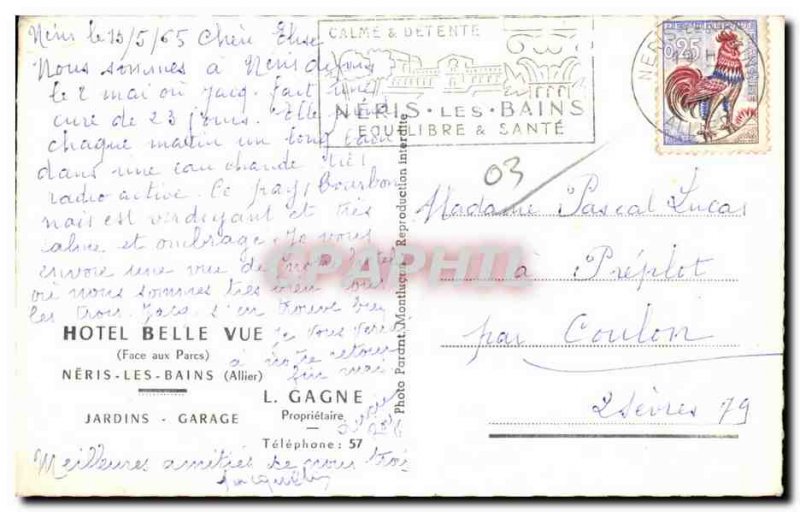 Néris le 13/5/65 Chère Elise
Nous sommes à Néris depuis
le 2 mai où Jacq. fait une
cure de 23 jours. Elle prend
chaque matin un long bain
dans une eau chaude très
radio active. Ce pays bourbon
nais est verdoyant et très
calme et ombragé. Je vous
envoie une vue de notre hôtel
où nous sommes très bien tous
les trois. Jacq. s'en trouve bien
je vous verrai
à notre retour
fin mai
HOTEL BELLE VUE
(Face aux Parcs)
NÉRIS-LES-BAINS (Allier)
JARDINS - GARAGE
L. GAGNE
Propriétaire
Téléphone : 57
Meilleures amitiés de nous trois
Photo Parant, Montluçon. Reproduction interdite
CALME & DÉTENTE
NÉRIS·LES·BAINS
EQUILIBRE & SANTÉ
0,25
03
Madame Pascal Lucas
à Préplot
par Coulon
2 Sèvres 79
CPAPHIL